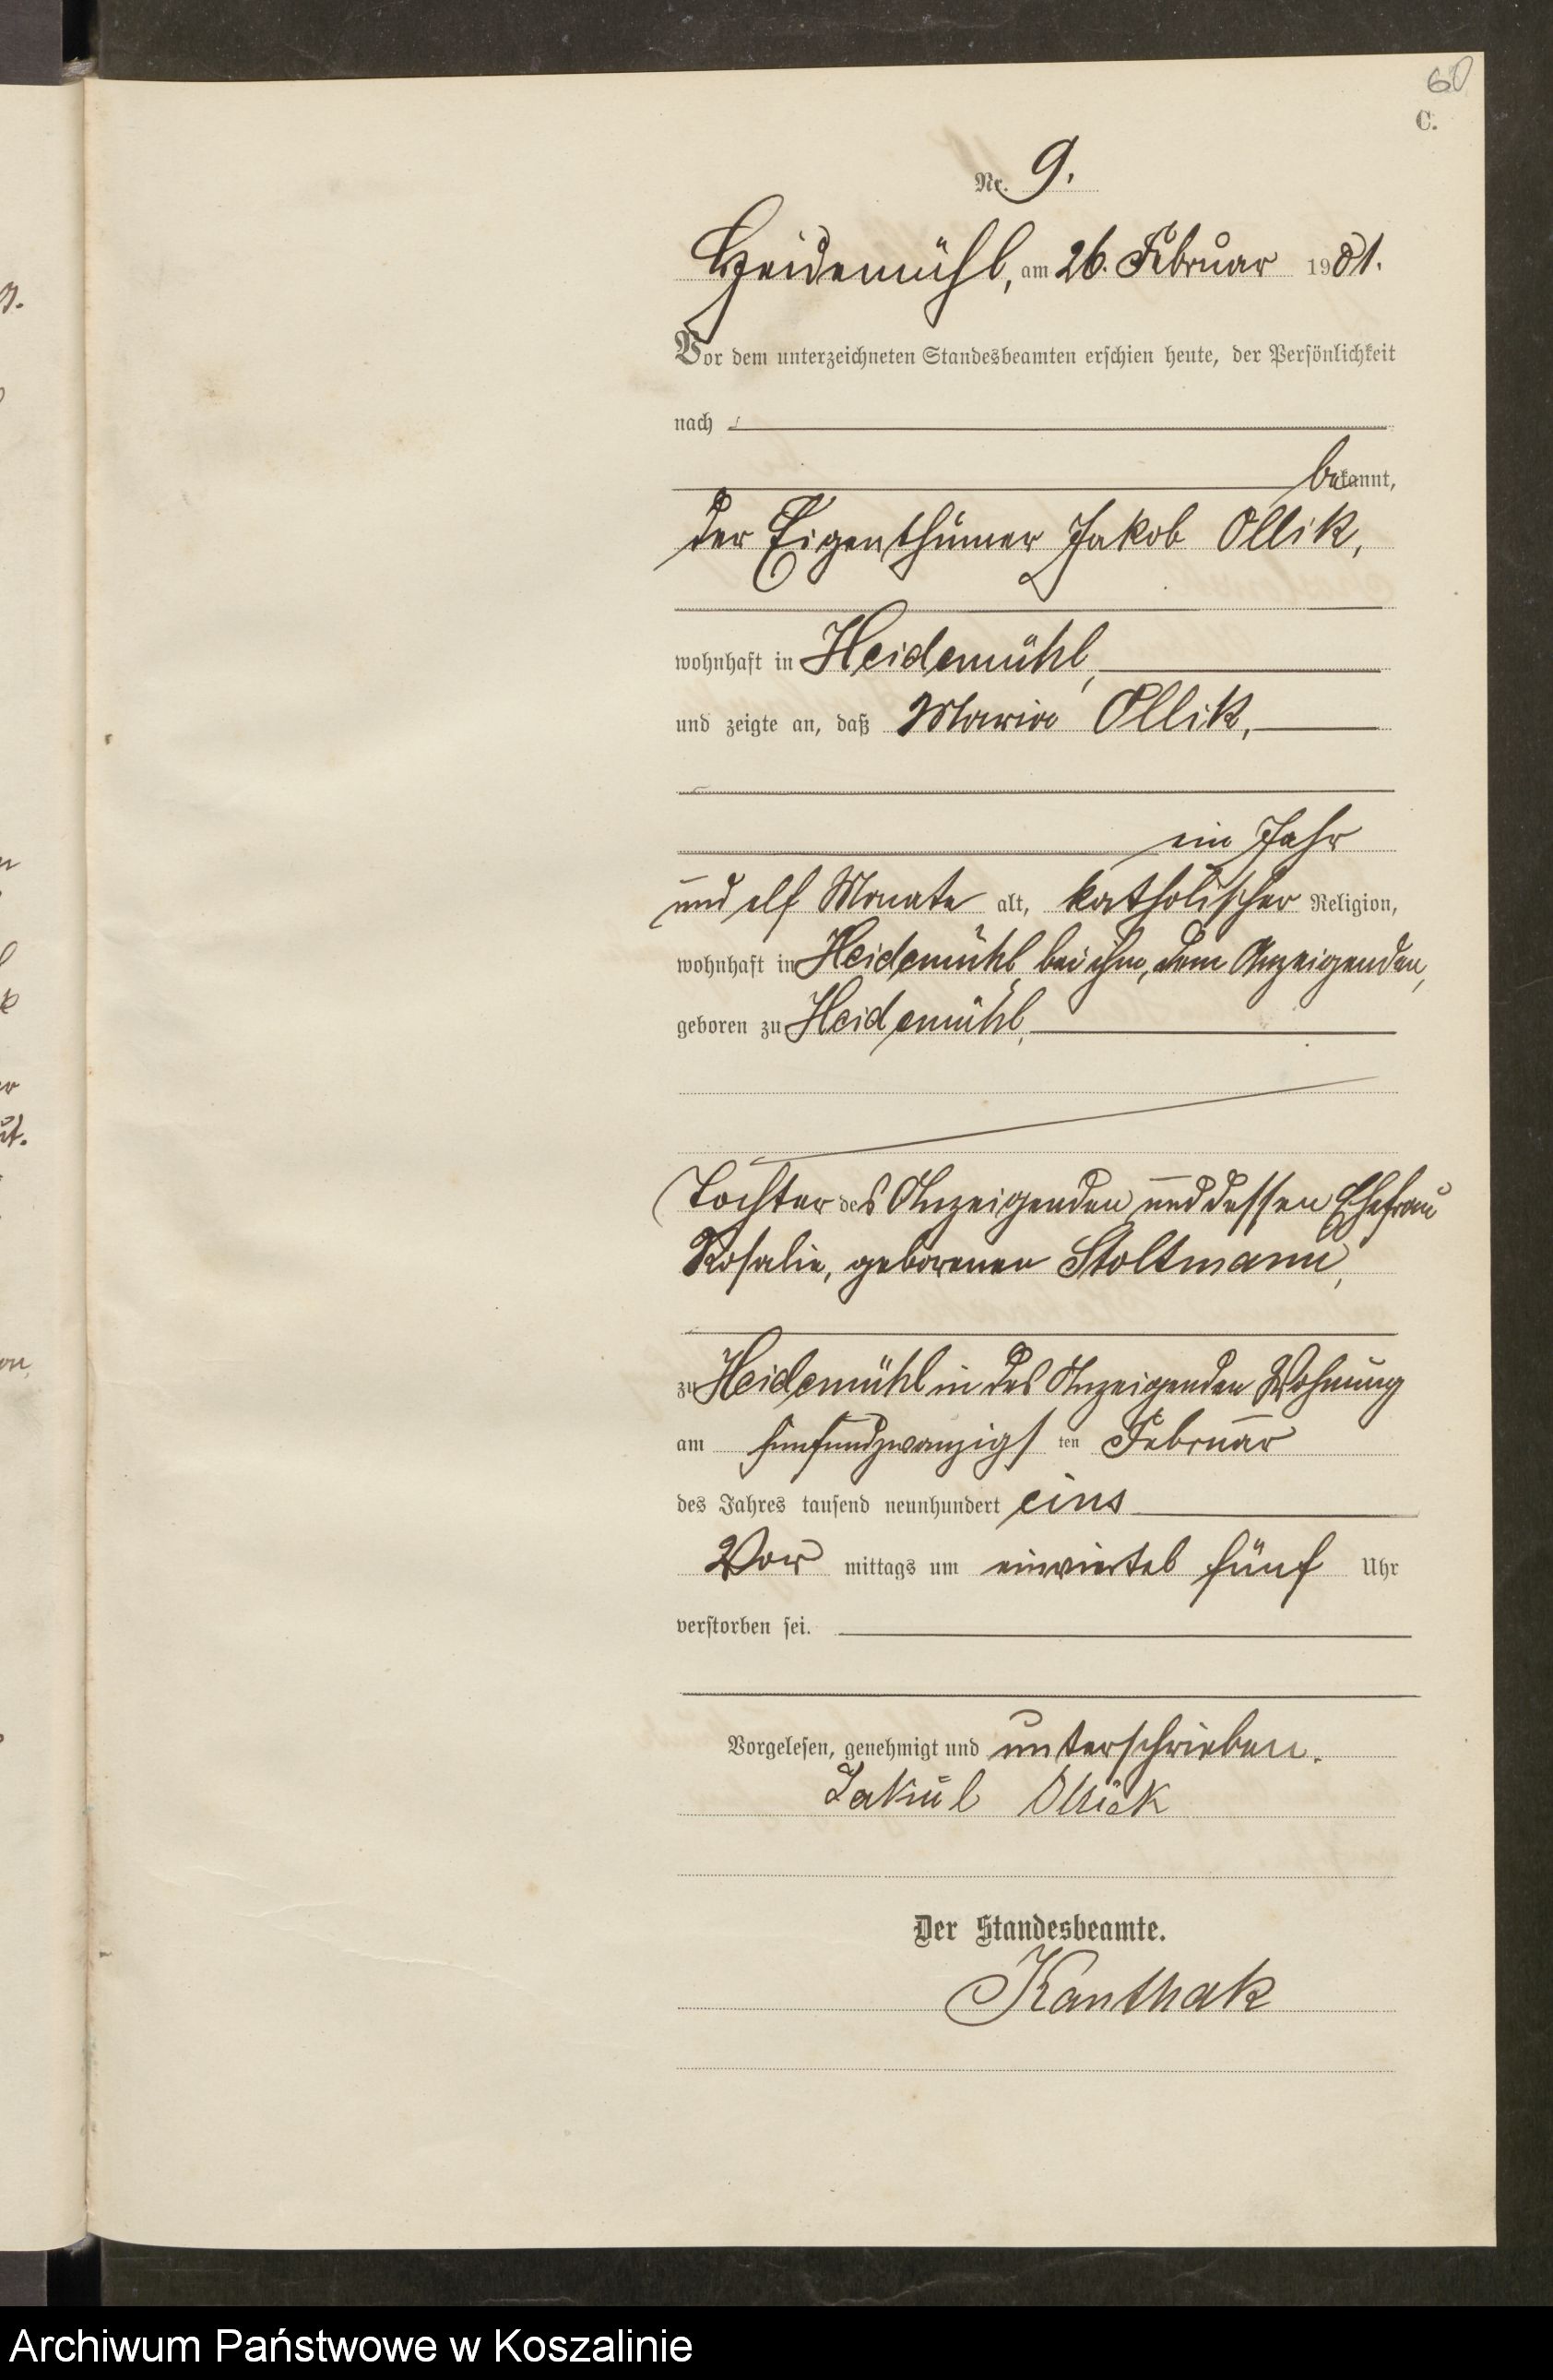 60
C.
Nr. 9.
Heidemühl, am 26. Februar 1901.
Vor dem unterzeichneten Standesbeamten erschien heute, der Persönlichkeit
nach
bekannt,
der Eigenthümer Jakob Ollik,
wohnhaft in Heidemühl,
und zeigte an, daß Maria Ollik,
ein Jahr
und elf Monate alt, katholischer Religion,
wohnhaft in Heidemühl bei ihm, dem Anzeigenden,
geboren zu Heidemühl,
Tochter des Anzeigenden und dessen Ehefrau
Rosalie, geborenen Stoltmann,
zu Heidemühl in des Anzeigenden Wohnung
am fünfundzwanzigsten Februar
des Jahres tausend neunhundert eins
Vor mittags um einviertel fünf Uhr
verstorben sei.
Vorgelesen, genehmigt und unterschrieben.
Jakub Ollick
Der Standesbeamte.
Kanthak
Archiwum Państwowe w Koszalinie